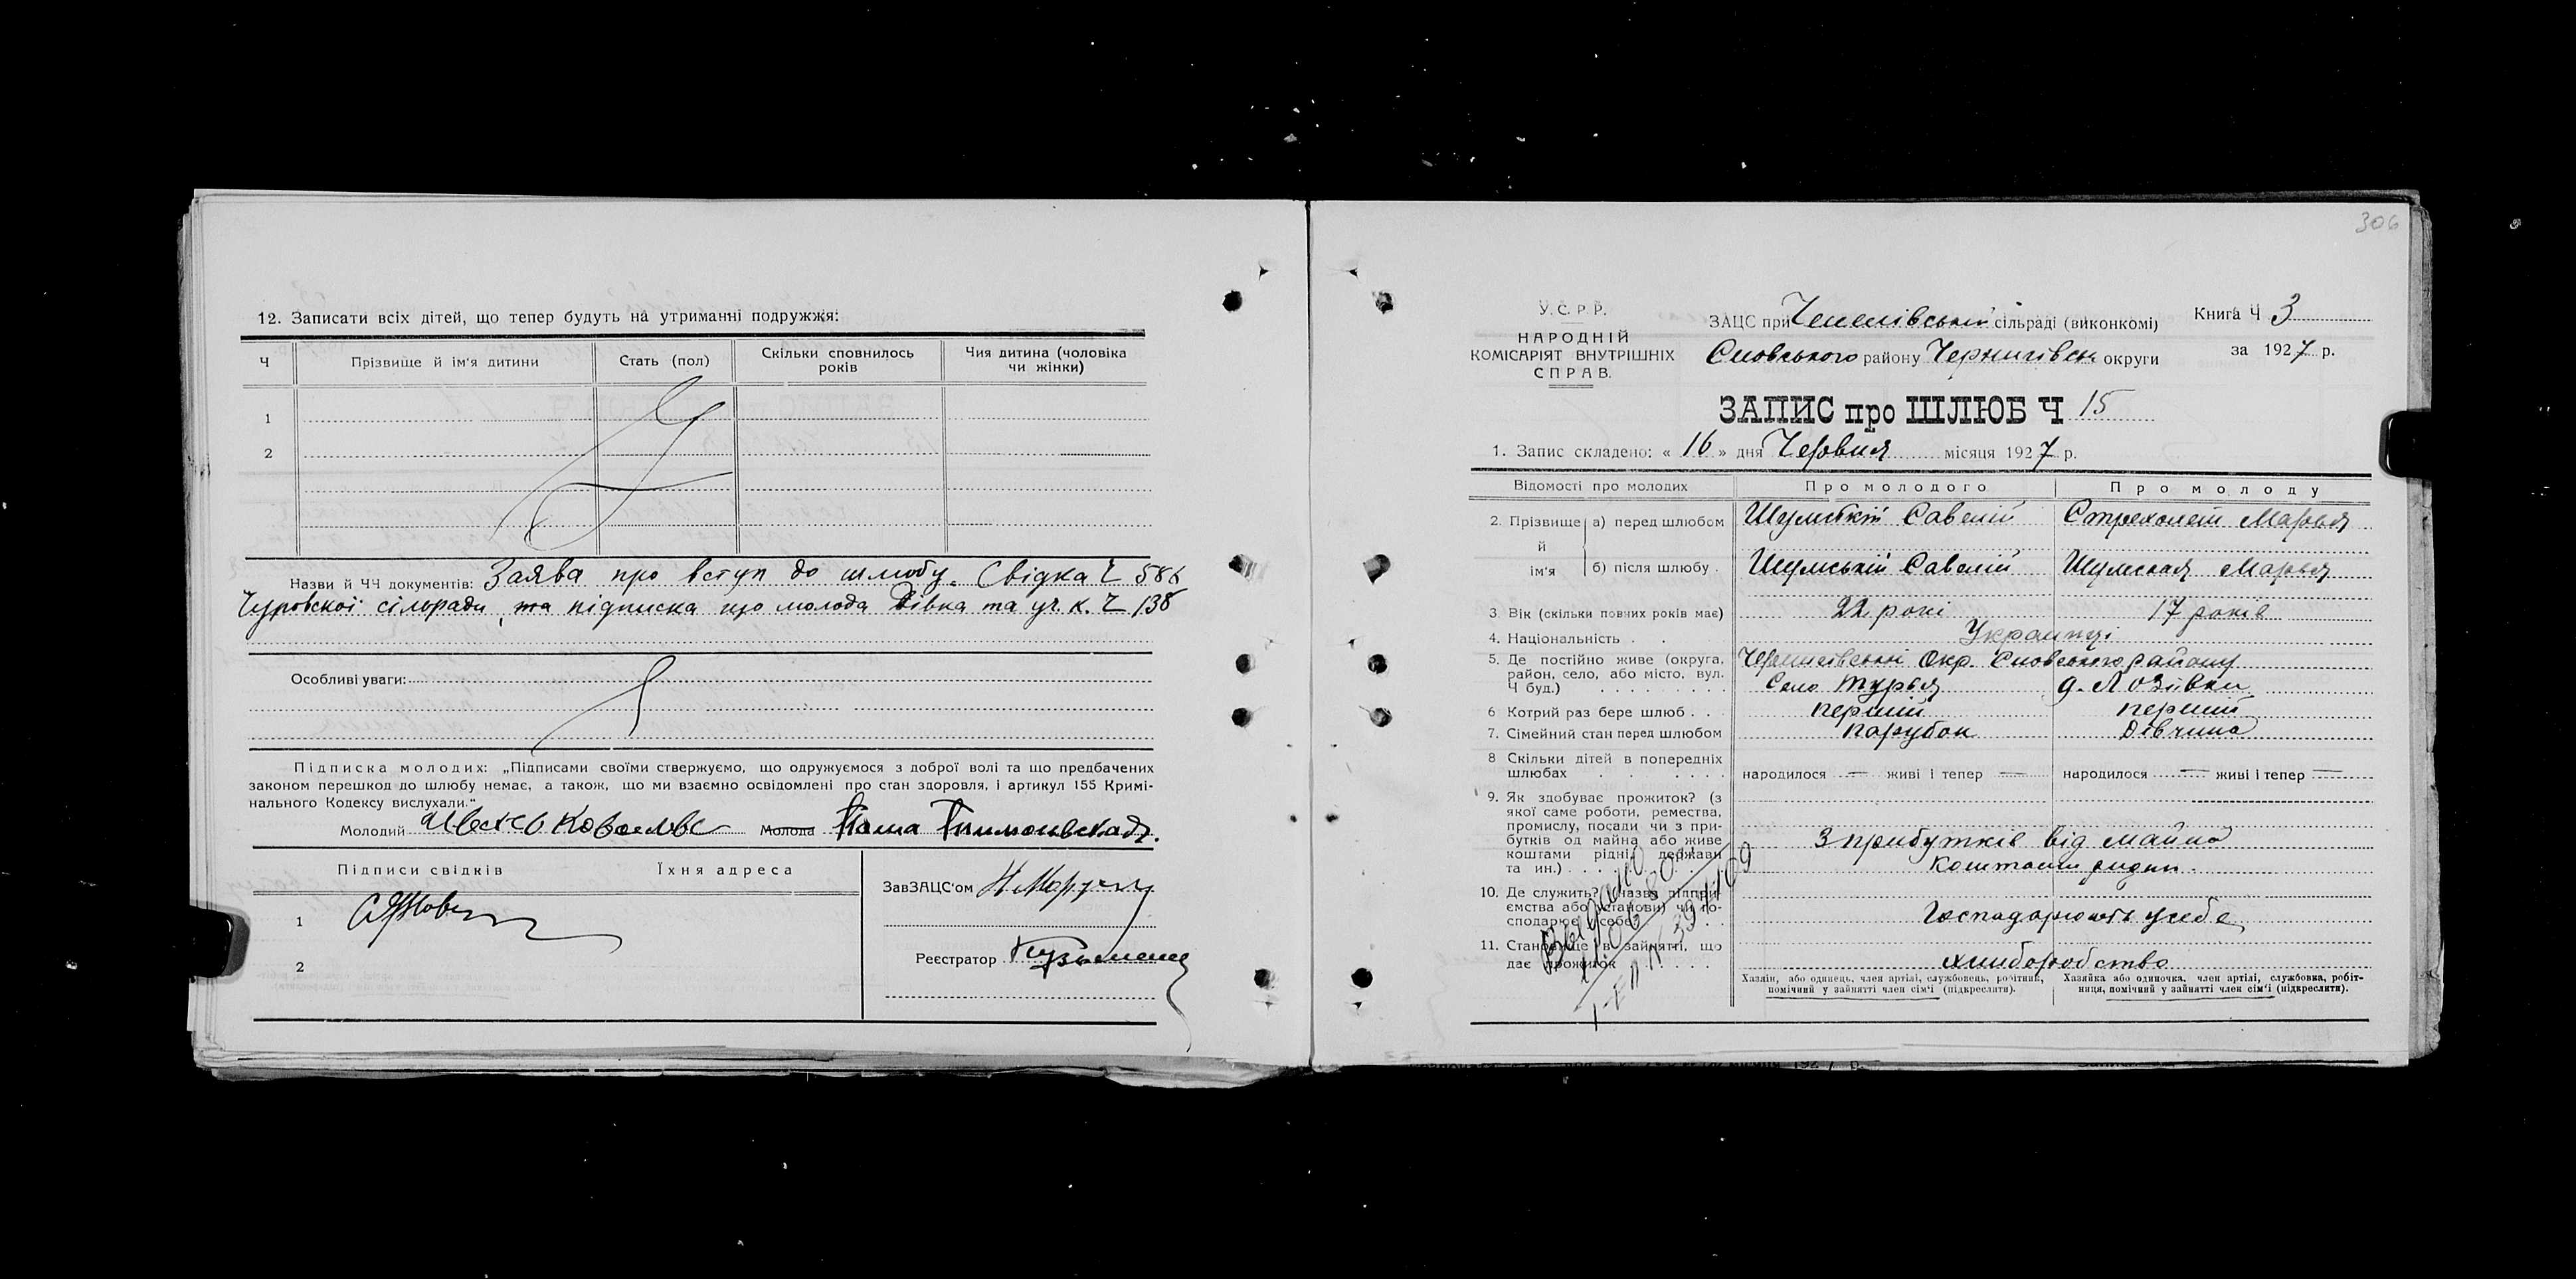 12. Записати всіх дітей, що тепер будуть на утриманні подружжя:
Ч Прізвище й ім'я дитини Стать (пол) Скільки сповнилось років Чия дитина (чоловіка чи жінки)
1
2
Назви й ЧЧ документів: Заява про вступ до шлюбу. Свідка Ч 586
Чуровскої сілради, та підписка що молода дівка та уч. к. Ч 138
Особливі уваги:
Підписка молодих: „Підписами своїми стверджуємо, що одружуємося з доброї волі та що предбачених
законом перешкод до шлюбу немає, а також, що ми взаємно освідомлені про стан здоровля, і артикул 155 Кримі-
нального Кодексу вислухали."
Молодий Молода
Підписи свідків Їхня адреса
1
2
ЗавЗАЦС'ом
Реєстратор
306
У.С.Р.Р.
НАРОДНІЙ
КОМІСАРІЯТ ВНУТРІШНІХ
СПРАВ.
ЗАЦС при сільраді (виконкомі)
Сновського району Чернигівськ округи
Книга Ч 3
за 1927 р.
ЗАПИС про ШЛЮБ Ч 15
1. Запис складено: « 16 » дня Червня місяця 1927 р.
Відомості про молодих Про молодого Про молоду
2. Прізвище й ім'я а) перед шлюбом Савелій Марья
б) після шлюбу . Шумський Савелій Шумская Марья
3. Вік (скільки повних років має) 22 рокі 17 років
4. Національність . . Украинці
5. Де постійно живе (округа, район, село, або місто, вул. Ч буд.) Окр. Сновського району
Село Турья д. Лозівки
6 Котрий раз бере шлюб . . перший перший
7. Сімейний стан перед шлюбом парубок дівчина
8 Скільки дітей в попередніх шлюбах народилося — живі і тепер — народилося — живі і тепер —
9. Як здобуває прожиток? (з якої саме роботи, ремества, промислу, посади чи з при-бутків од майна або живе коштами рідні, держави та ин.) З прибутків від майна
коштами
10. Де служить? (Назва підпри-ємства або установи) чи го-сподарює особе? Господарюють у себе
11. Становище в зайнятті, що дає прожиток хлиборобство
Хазяін, або одинець, член артілі, службовець, робітник, помічний у зайнятті член сім'ї (підкреслити).
Хазяйка або одиночка, член артілі, службовка, робіт-ниця, помічний у зайнятті член сім'ї (підкреслити).